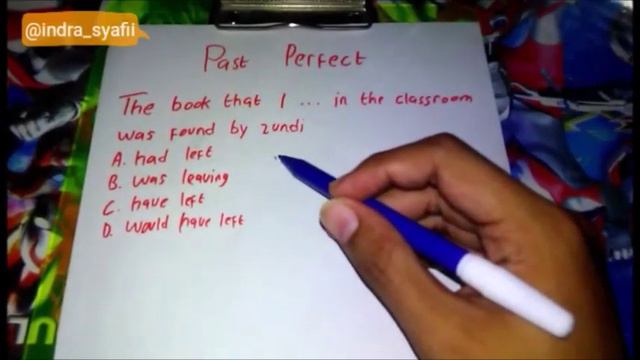 @indra_syafii
Past Perfect
The book that I ... in the classroom
was found by zundi
A. had left
B. was leaving
C. have left
D. would have left